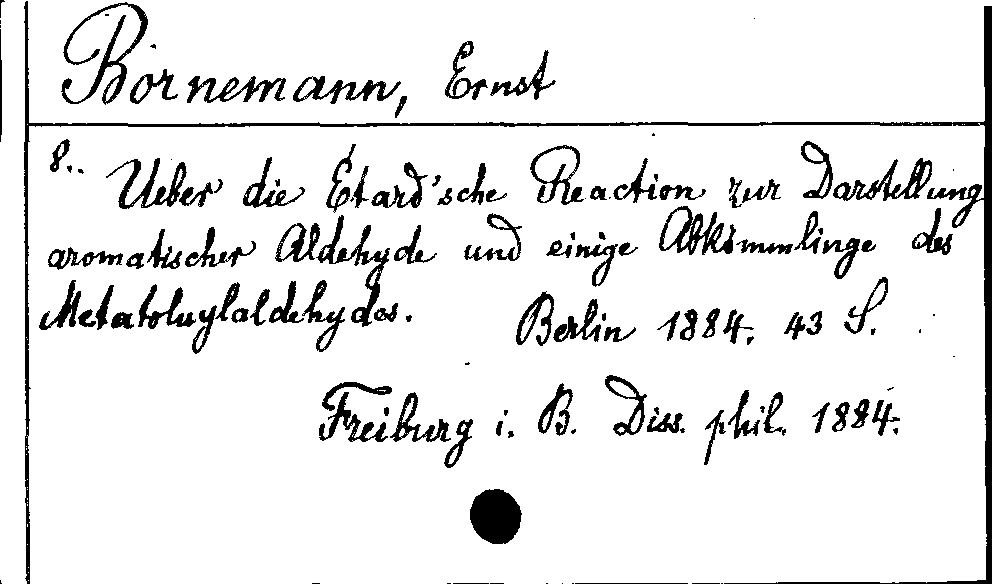 Bornemann, Ernst
8.. Ueber die Étard'sche Reaction zur Darstellung
aromatischer Aldehyde und einige Abkömmlinge des
Metatoluylaldehydes. Berlin 1884. 43 S.
Freiburg i. B. Diss. phil. 1884.